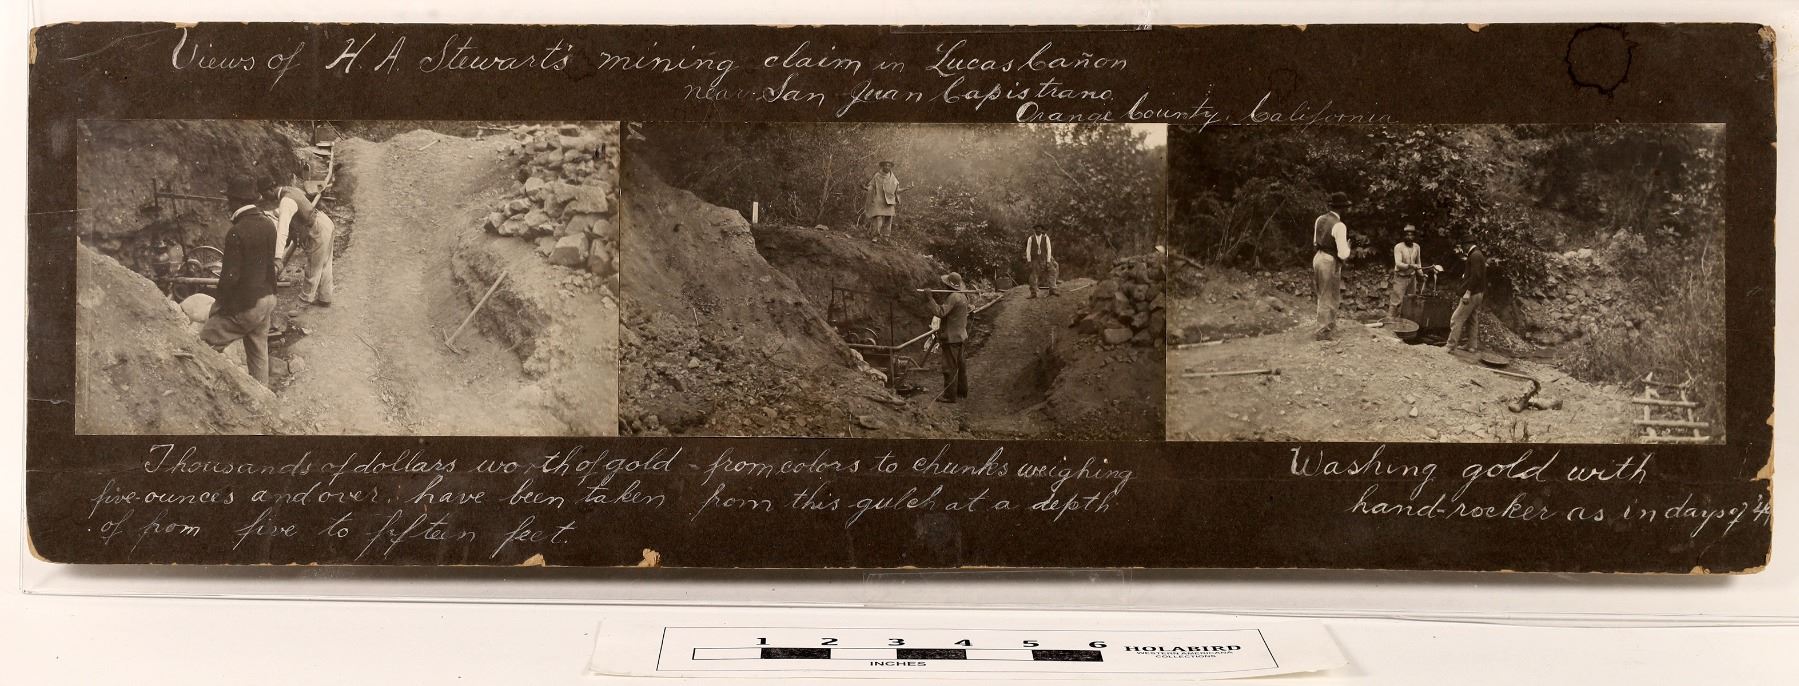 Views of H. A. Stewart's mining claim in Lucas Cañon
near San Juan Capistrano
Orange County, California
Thousands of dollars worth of gold - from colors to chunks weighing
five ounces and over, have been taken from this gulch at a depth
of from five to fifteen feet.
Washing gold with
hand-rocker as in days of '4
1 2 3 4 5 6
INCHES
HOLABIRD
WESTERN AMERICANA
COLLECTIONS